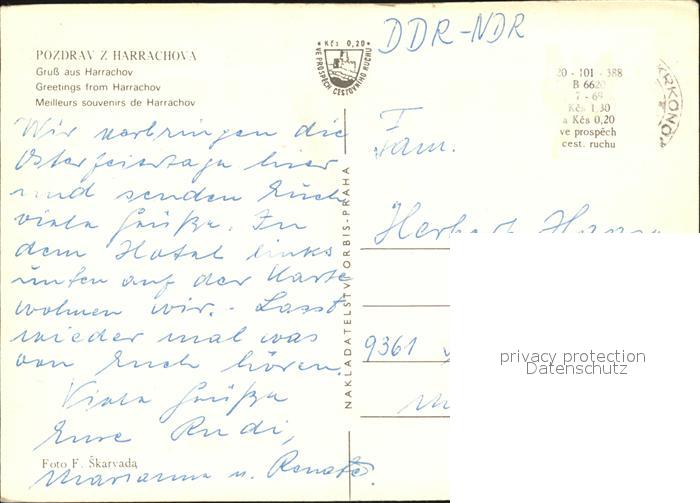 POZDRAV Z HARRACHOVA
Gruß aus Harrachov
Greetings from Harrachov
Meilleurs souvenirs de Harrachov
Wir verbringen die
Osterfeiertage hier
und senden Euch
viele Grüße. In
dem Hotel links
unten auf der Karte
wohnen wir. - Lasst
wieder mal was
von Euch hören.
Viele Grüße
Eure Rudi,
Marianne u. Renate.
Foto F. Škarvada
* Kčs 0,20 *
VE PROSPĚCH CESTOVNÍHO RUCHU
NAKLADATELSTVÍ ORBIS-PRAHA
DDR-NDR
20 - 101 - 388
B 6620
7 - 69
Kčs 1,30
a Kčs 0,20
ve prospěch
cest. ruchu
RKONO
Fam.
Herbert
9361
privacy protection
Datenschutz